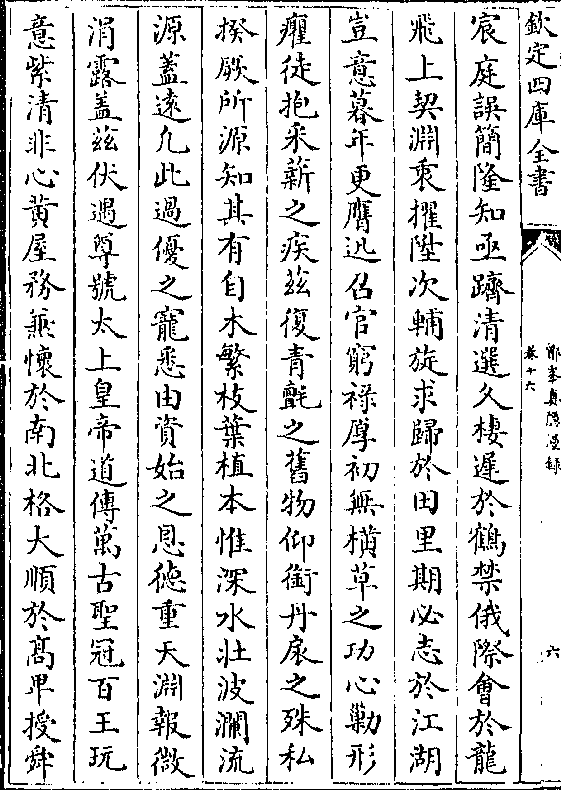 欽定四庫全書
鄮峯真隱漫録
卷十六
六
宸庭誤簡隆知亟躋清選久棲遲於鶴禁俄際會於龍
飛上契淵衷擢陞次輔旋求歸於田里期必志於江湖
豈意暮年更膺迅召官窮禄厚初無横草之功心勦形
癯徒抱采薪之疾兹復青氊之舊物仰銜丹扆之殊私
揆厥所源知其有自木繁枝葉植本惟深水壯波瀾流
源蓋遠凢此過優之寵悉由資始之恩德重天淵報微
涓露盖兹伏遇尊號太上皇帝道傳萬古聖冠百王玩
意紫清非心黄屋務兼懷於南北格大順於髙卑授舜